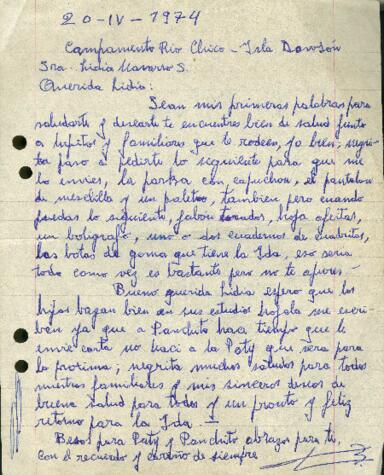 20-IV-1974
Campamento Río Chico - Isla Dawson
Sra. Lidia Navarro S.
Querida Lidia:
Sean mis primeras palabras para
saludarte y desearte te encuentres bien de salud junto
a hijitos y familiares que te rodeen, yo bien, negri-
ta paso a pedirte lo siguiente para que me
lo envies, la parka con capuchon, el pantalon
de mesclilla y un paleton, tambien pero cuando
puedas lo siguiente, jabon tocador, hoja afeitar,
un boligrafo, uno o dos cuaderno de cuadritos,
las botas de goma que tiene la Ida, eso seria
todo como vez es bastante pero no te apures.-
Bueno querida Lidia espero que los
hijos bayan bien en sus estudios hojala me escri-
ban ya que a Panchito hace tiempo que le
envie carta no haci a la Paty que será para
la proxima; negrita muchos saludos para todos
nuestros familiares y mis sinceros deseos de
buena salud para todos y un pronto y feliz
retorno para la Ida.
Besos para Paty y Panchito abrazos para ti,
con el recuerdo y cariño de siempre